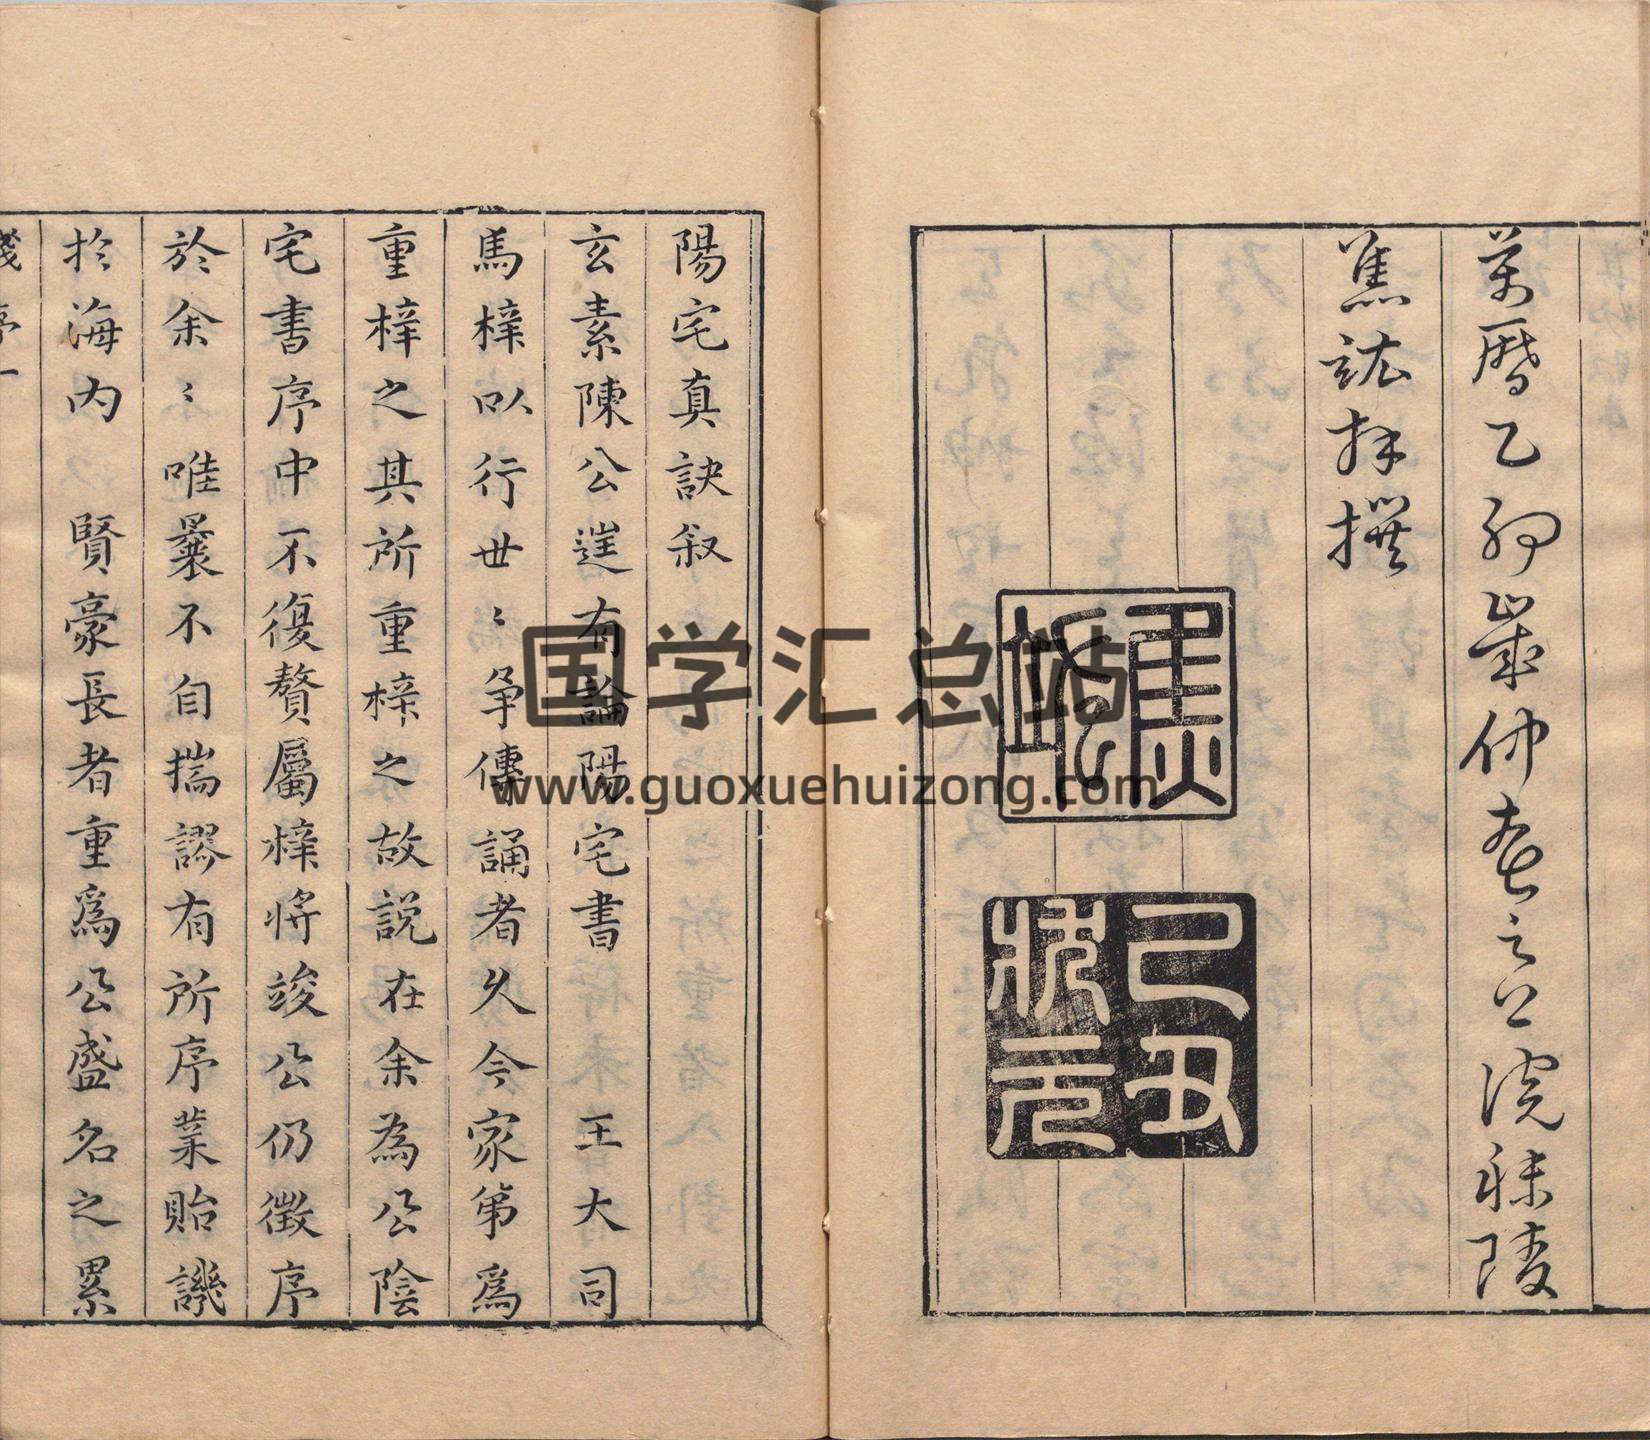 萬曆乙卯歲仲春之上浣秣陵
焦竑拜撰
焦竑
己丑
狀元
陽宅真訣叙
玄素陳公進有論陽宅書 王大司
馬梓以行世〻爭傳誦者久今家第爲
重梓之其所重梓之故説在余為公陰
宅書序中不復贅屬梓將竣公仍徵序
於余〻唯曩不自揣謬有所序業貽譏
扵海内 賢豪長者重爲公盛名之累
序一
国学汇总站
www.guoxuehuizong.com